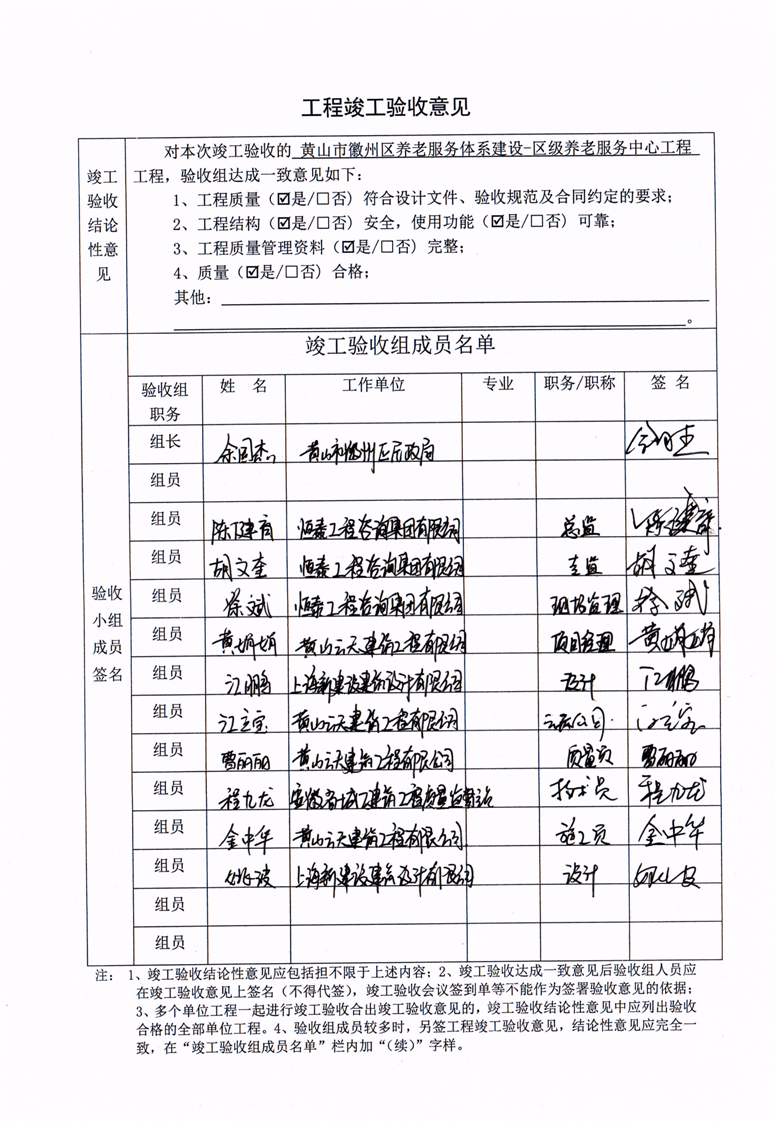 工程竣工验收意见
竣工
验收
结论
性意
见
对本次竣工验收的 黄山市徽州区养老服务体系建设-区级养老服务中心工程
工程，验收组达成一致意见如下：
1、工程质量（☑是/☐否）符合设计文件、验收规范及合同约定的要求；
2、工程结构（☑是/☐否）安全，使用功能（☑是/☐否）可靠；
3、工程质量管理资料（☑是/☐否）完整；
4、质量（☑是/☐否）合格；
其他：
。
验收
小组
成员
签名
竣工验收组成员名单
验收组
职务 姓 名 工作单位 专业 职务/职称 签 名
组长 黄山市徽州区民政局
组员
组员 恒泰工程咨询集团有限公司 总监
组员 胡文奎 恒泰工程咨询集团有限公司 胡文奎
组员 徐斌 恒泰工程咨询集团有限公司 现场监理 徐斌
组员 黄娟娟 黄山云天建筑工程有限公司 项目经理 黄娟娟
组员 江鹏 上海新建设建筑设计有限公司 设计 江鹏
组员 江立宝 黄山云天建筑工程有限公司
组员 曹丽丽 黄山云天建筑工程有限公司 质量员 曹丽丽
组员 程九龙 技术员 程九龙
组员 金中华 黄山云天建筑工程有限公司 施工员 金中华
组员 上海新建设建筑设计有限公司 设计
组员
组员
注： 1、竣工验收结论性意见应包括担不限于上述内容；2、竣工验收达成一致意见后验收组人员应
在竣工验收意见上签名（不得代签），竣工验收会议签到单等不能作为签署验收意见的依据；
3、多个单位工程一起进行竣工验收合出竣工验收意见的，竣工验收结论性意见中应列出验收
合格的全部单位工程。4、验收组成员较多时，另签工程竣工验收意见，结论性意见应完全一
致，在“竣工验收组成员名单”栏内加“(续)”字样。